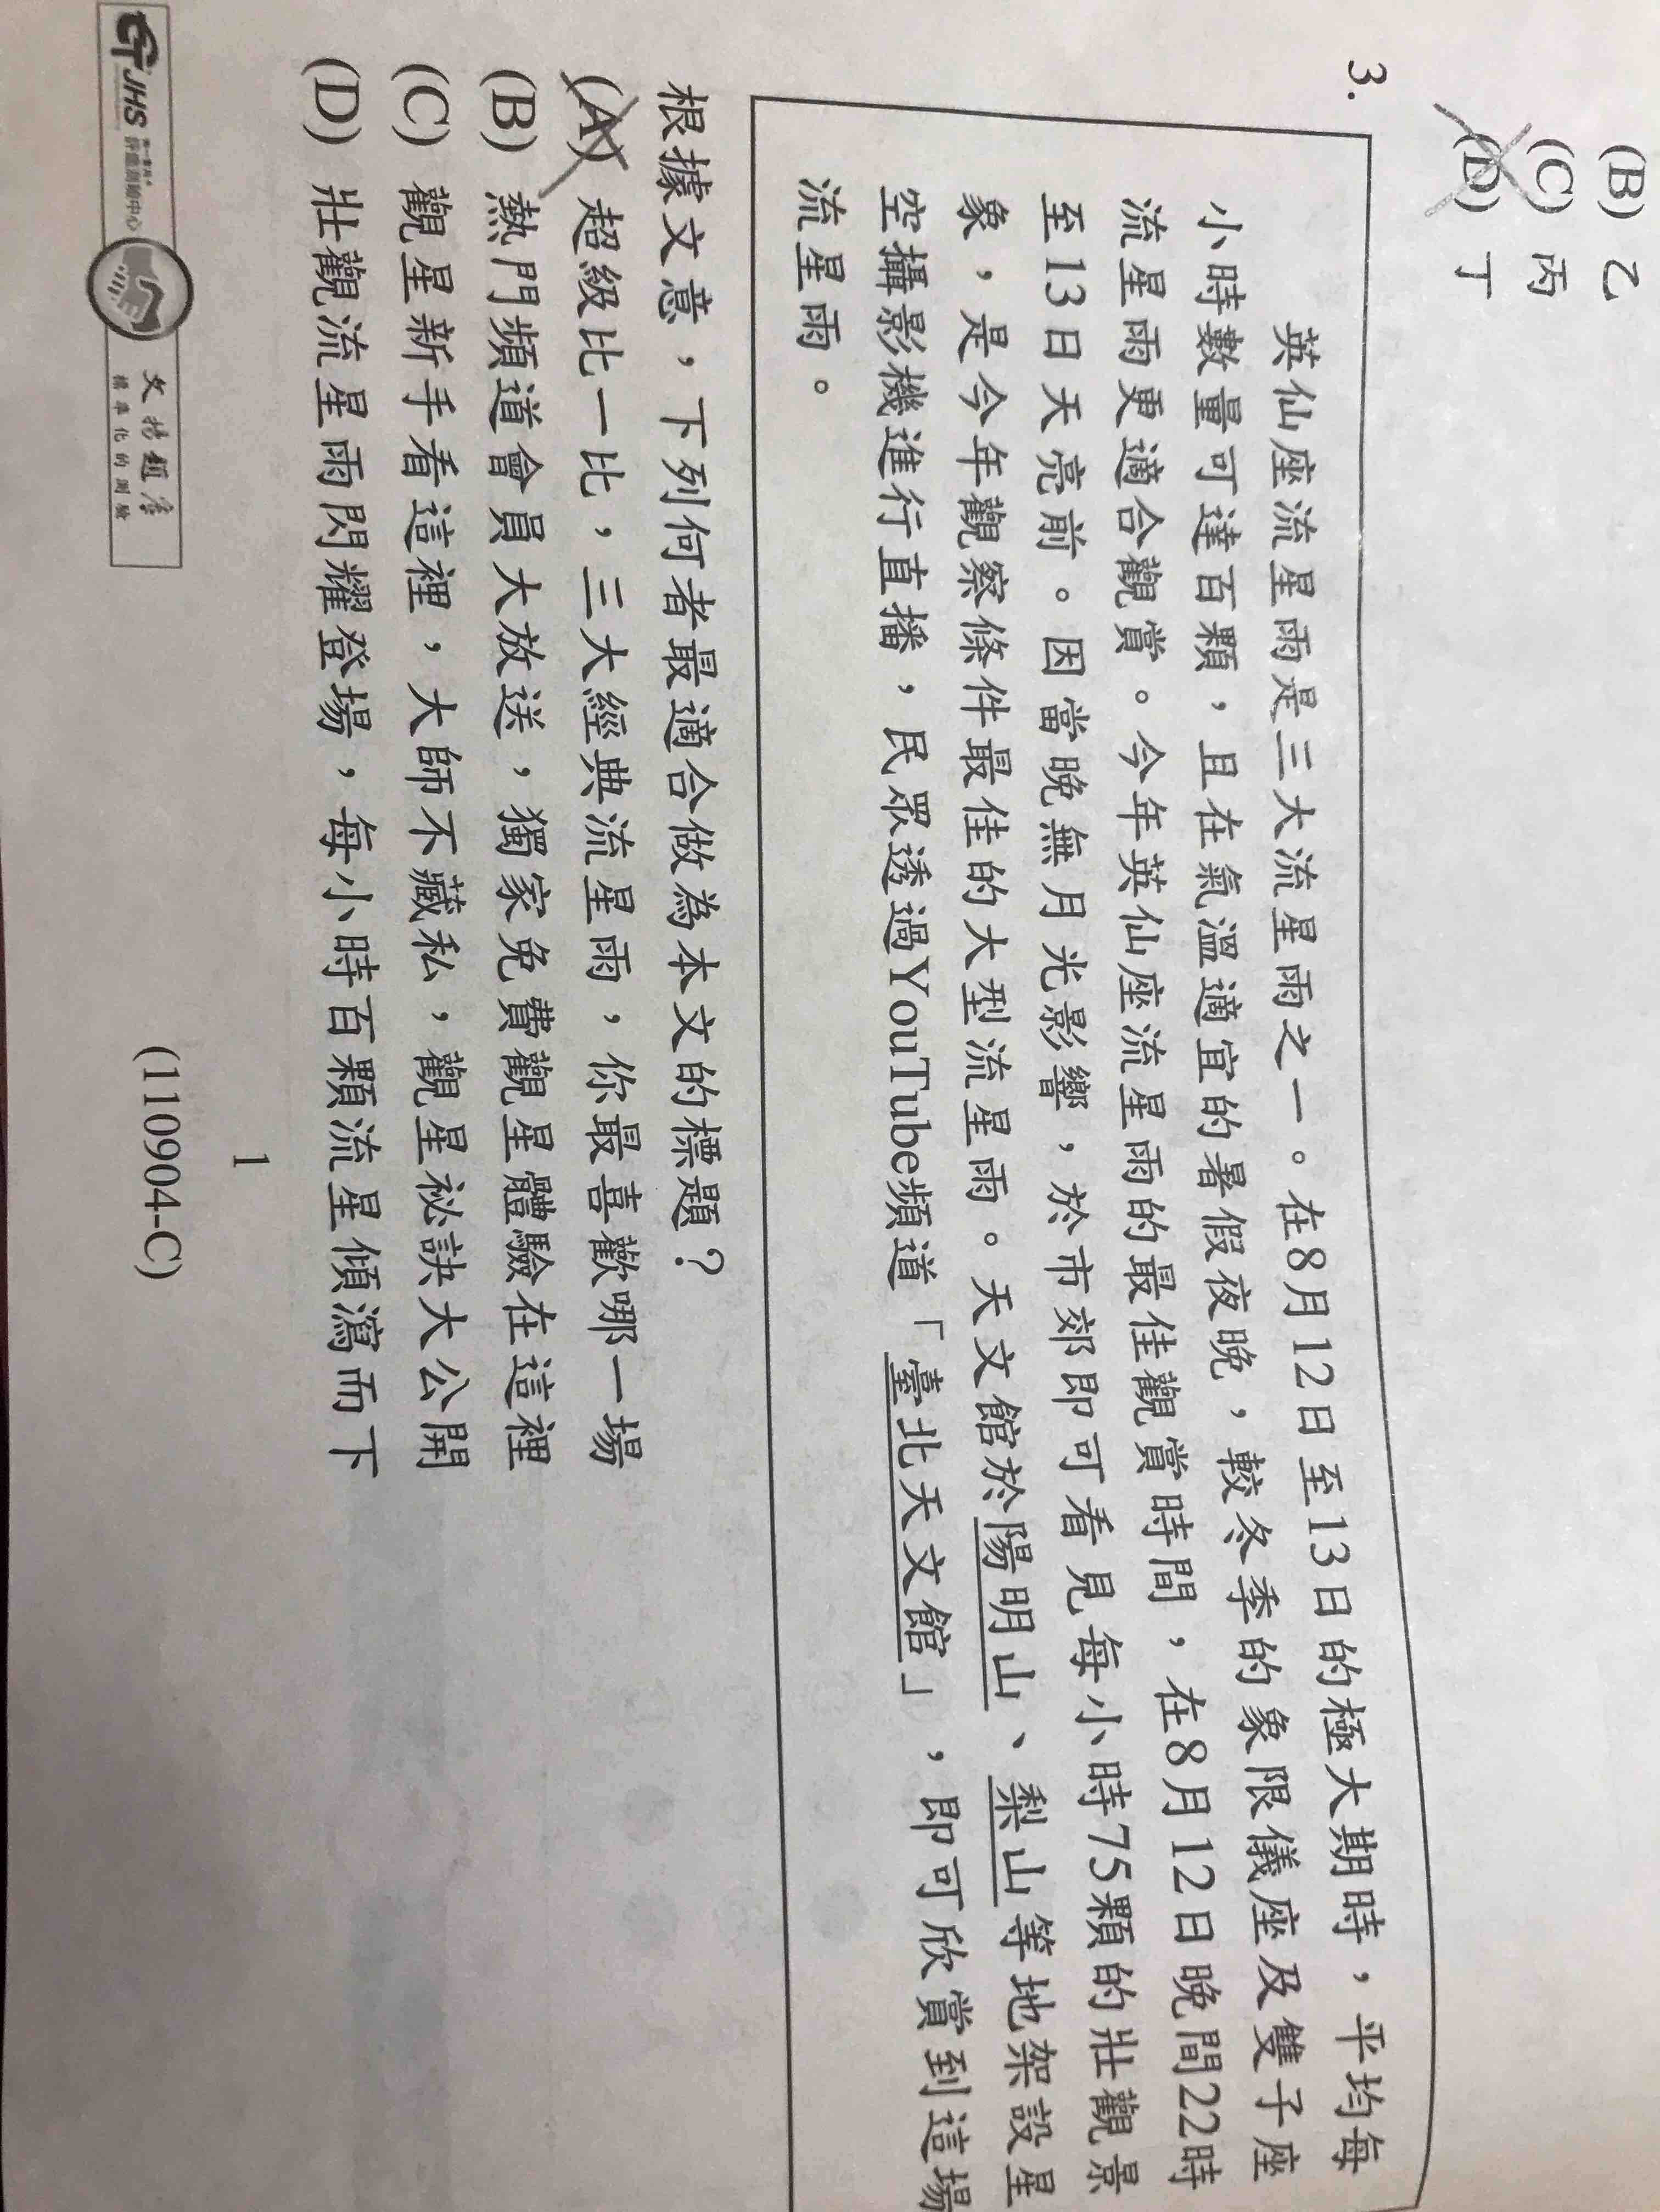 (B) 乙
(C) 丙
(D) 丁
3.
英仙座流星雨是三大流星雨之一。在8月12日至13日的極大期時,平均每
小時數量可達百顆,且在氣溫適宜的暑假夜晚,較冬季的象限儀座及雙子座
流星雨更適合觀賞。今年英仙座流星雨的最佳觀賞時間,在8月12日晚間22時
至13日天亮前。因當晚無月光影響,於市郊即可看見每小時75顆的壯觀景
象,是今年觀察條件最佳的大型流星雨。天文館於陽明山、梨山等地架設星
空攝影機進行直播,民眾透過YouTube頻道「臺北天文館」,即可欣賞到這場
流星雨。
根據文意,下列何者最適合做為本文的標題?
(A) 超級比一比,三大經典流星雨,你最喜歡哪一場
(B) 熱門頻道會員大放送,獨家免費觀星體驗在這裡
(C) 觀星新手看這裡,大師不藏私,觀星祕訣大公開
(D) 壯觀流星雨閃耀登場,每小時百顆流星傾瀉而下
1
(110904-C)
JHS 評量測驗中心
文揚
標準化的測驗